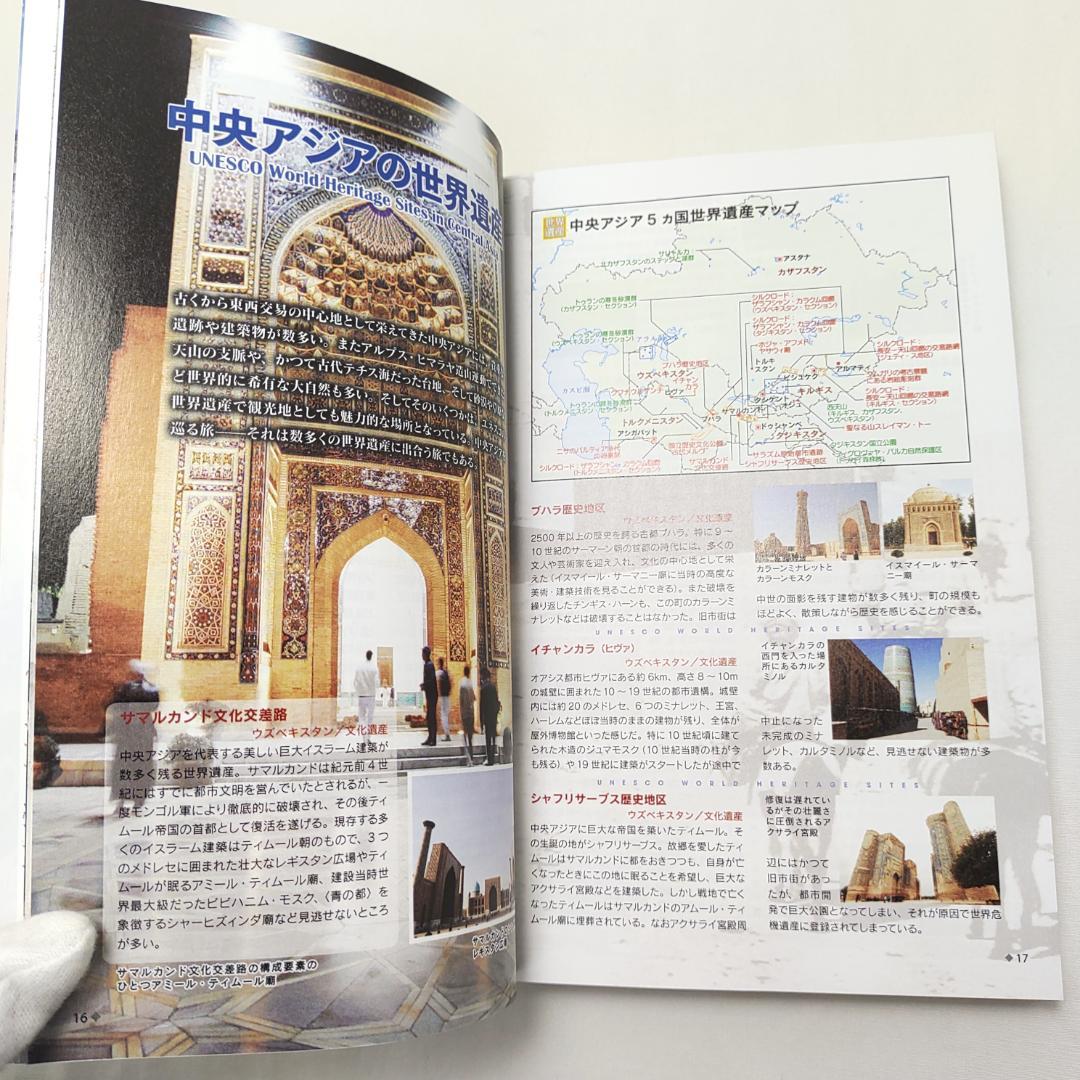 中央アジアの世界遺産
UNESCO World Heritage Sites in Central A
古くから東西交易の中心地として栄えてきた中央アジアには、
遺跡や建築物が数多い。またアルプス・ヒマラヤ造山運動で
天山の支脈や、かつて古代テチス海だった台地、そして砂漠や
ど世界的に希有な大自然も多い。そしてそのいくつかは、ユネス
世界遺産で観光地としても魅力的な場所となっている。中央アジアを
巡る旅──それは数多くの世界遺産に出合う旅でもある。
サマルカンド文化交差路
ウズベキスタン／文化遺産
中央アジアを代表する美しい巨大イスラーム建築が
数多く残る世界遺産。サマルカンドは紀元前4世
紀にはすでに都市文明を営んでいたとされるが、一
度モンゴル軍により徹底的に破壊され、その後ティ
ムール帝国の首都として復活を遂げる。現存する多
くのイスラーム建築はティムール朝のもので、3つ
のメドレセに囲まれた壮大なレギスタン広場やティ
ムールが眠るアミール・ティムール廟、建設当時世
界最大級だったビビハニム・モスク、〈青の都〉を
象徴するシャーヒズィンダ廟など見逃せないところ
が多い。
サマルカンド文化交差路の構成要素の
ひとつアミール・ティムール廟
レギスタン広場
16
世界
遺産
中央アジア5ヵ国世界遺産マップ
サリャルカ
北カザフスタンのステップと湖群
アスタナ
カザフスタン
トゥランの寒冬砂漠群
(カザフスタン・セクション)
シルクロード：
ザラフシャン・カラクム回廊
(ウズベキスタン・セクション)
トゥランの寒冬砂漠群
(ウズベキスタン・セクション)
シルクロード：
ザラフシャン・カラクム回廊
(タジキスタン・セクション)
アラル海
ホジャ・アフメド・
ヤサウィ廟
シルクロード：
長安-天山回廊の交易路網
(ジェティ・スー地区)
ブハラ歴史地区
トルキ
スタン
アルマティ
タムガリの考古景観
にある岩絵彫刻群
ウズベキスタン
イチャン
カラ
ビシュケク
カスピ海
キルギス
シルクロード：
長安-天山回廊の交易路網
(キルギス・セクション)
ヒヴァ
タシケント
トゥランの寒冬砂漠群
(トルクメニスタン・セクション)
サマルカンド
オシュ
西天山
(キルギス、カザフスタン、
ウズベキスタン)
ブハラ
トルクメニスタン
ドゥシャンベ
聖なる山スレイマン・トー
アシガバット
タジキスタン
タジキスタン国立公園
国立歴史文化公園
サラズム原始都市遺跡
シャフリサーブス歴史地区
サマルカンド
文化交差路
シルクロード：ザラフシャン・カラクム回廊
(トルクメニスタン・セクション)
ブハラ歴史地区
ウズベキスタン／文化遺産
2500年以上の歴史を誇る古都ブハラ。特に9～
10世紀のサーマーン朝の首都の時代には、多くの
文人や芸術家を迎え入れ、文化の中心地として栄
えた(イスマイール・サーマニー廟に当時の高度な
美術・建築技術を見ることができる)。また破壊を
繰り返したチンギス・ハーンも、この町のカラーンミ
ナレットなどは破壊することはなかった。旧市街は
カラーンミナレットと
カラーンモスク
イスマイール・サーマ
ニー廟
中世の面影を残す建物が数多く残り、町の規模も
ほどよく、散策しながら歴史を感じることができる。
UNESCO WORLD HERITAGE SITES
イチャンカラ（ヒヴァ）
ウズベキスタン／文化遺産
オアシス都市ヒヴァにある約6km、高さ8～10m
の城壁に囲まれた10～19世紀の都市遺構。城壁
内には約20のメドレセ、6つのミナレット、王宮、
ハーレムなどほぼ当時のままの建物が残り、全体が
屋外博物館といった感じだ。特に10世紀頃に建て
られた木造のジュマモスク(10世紀当時の柱が今
も残る)や19世紀に建築がスタートしたが途中で
イチャンカラの
西門を入った場
所にあるカルタ
ミノル
中止になった
未完成のミナ
レット、カルタミノルなど、見逃せない建築物が多
数ある。
UNESCO WORLD HERITAGE SITES
シャフリサーブス歴史地区
ウズベキスタン／文化遺産
中央アジアに巨大な帝国を築いたティムール。そ
の生誕の地がシャフリサーブス。故郷を愛したティ
ムールはサマルカンドに都をおきつつも、自身が亡
くなったときにこの地に眠ることを希望し、巨大な
アクサライ宮殿などを建築した。しかし戦地で亡く
なったティムールはサマルカンドのアムール・ティ
ムール廟に埋葬されている。なおアクサライ宮殿周
修復は遅れてい
るがその壮麗さ
に圧倒されるア
クサライ宮殿
辺にはかつて
旧市街があっ
たが、都市開
発で巨大公園となってしまい、それが原因で世界危
機遺産に登録されてしまっている。
17